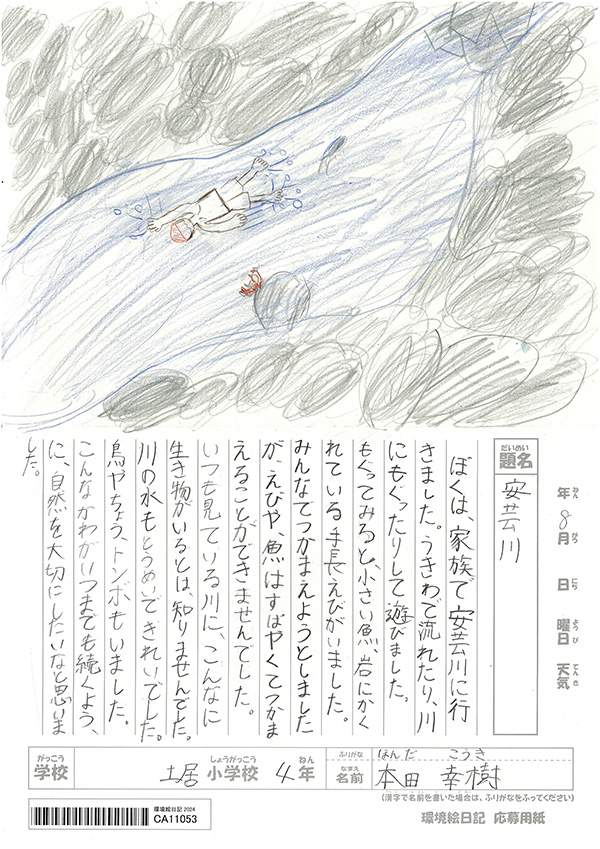 年8月 日 曜日 天気
ねん がつ にち ようび てんき
だいめい
題名
安芸川
ぼくは、家族で安芸川に行
きました。うきわで流れたり、川
にもぐったりして遊びました。
もぐってみると、小さい魚、岩にかく
れている手長えびがいました。
みんなでつかまえようとしました
が、えびや、魚はすばやくてつかま
えることができませんでした。
いつも見ている川に、こんなに
生き物がいるとは、知りませんでした。
川の水もとうめいできれいでした。
鳥やちょう、トンボもいました。
こんなかわがいつまでも続くよう、
に、自然を大切にしたいなと思いま
した。
がっこう
学校
しょうがっこう ねん
土居小学校 4年
ふりがな
ほんだ こうき
なまえ
名前
本田 幸樹
(漢字で名前を書いた場合は、ふりがなをふってください)
環境絵日記 2024
CA11053
環境絵日記 応募用紙